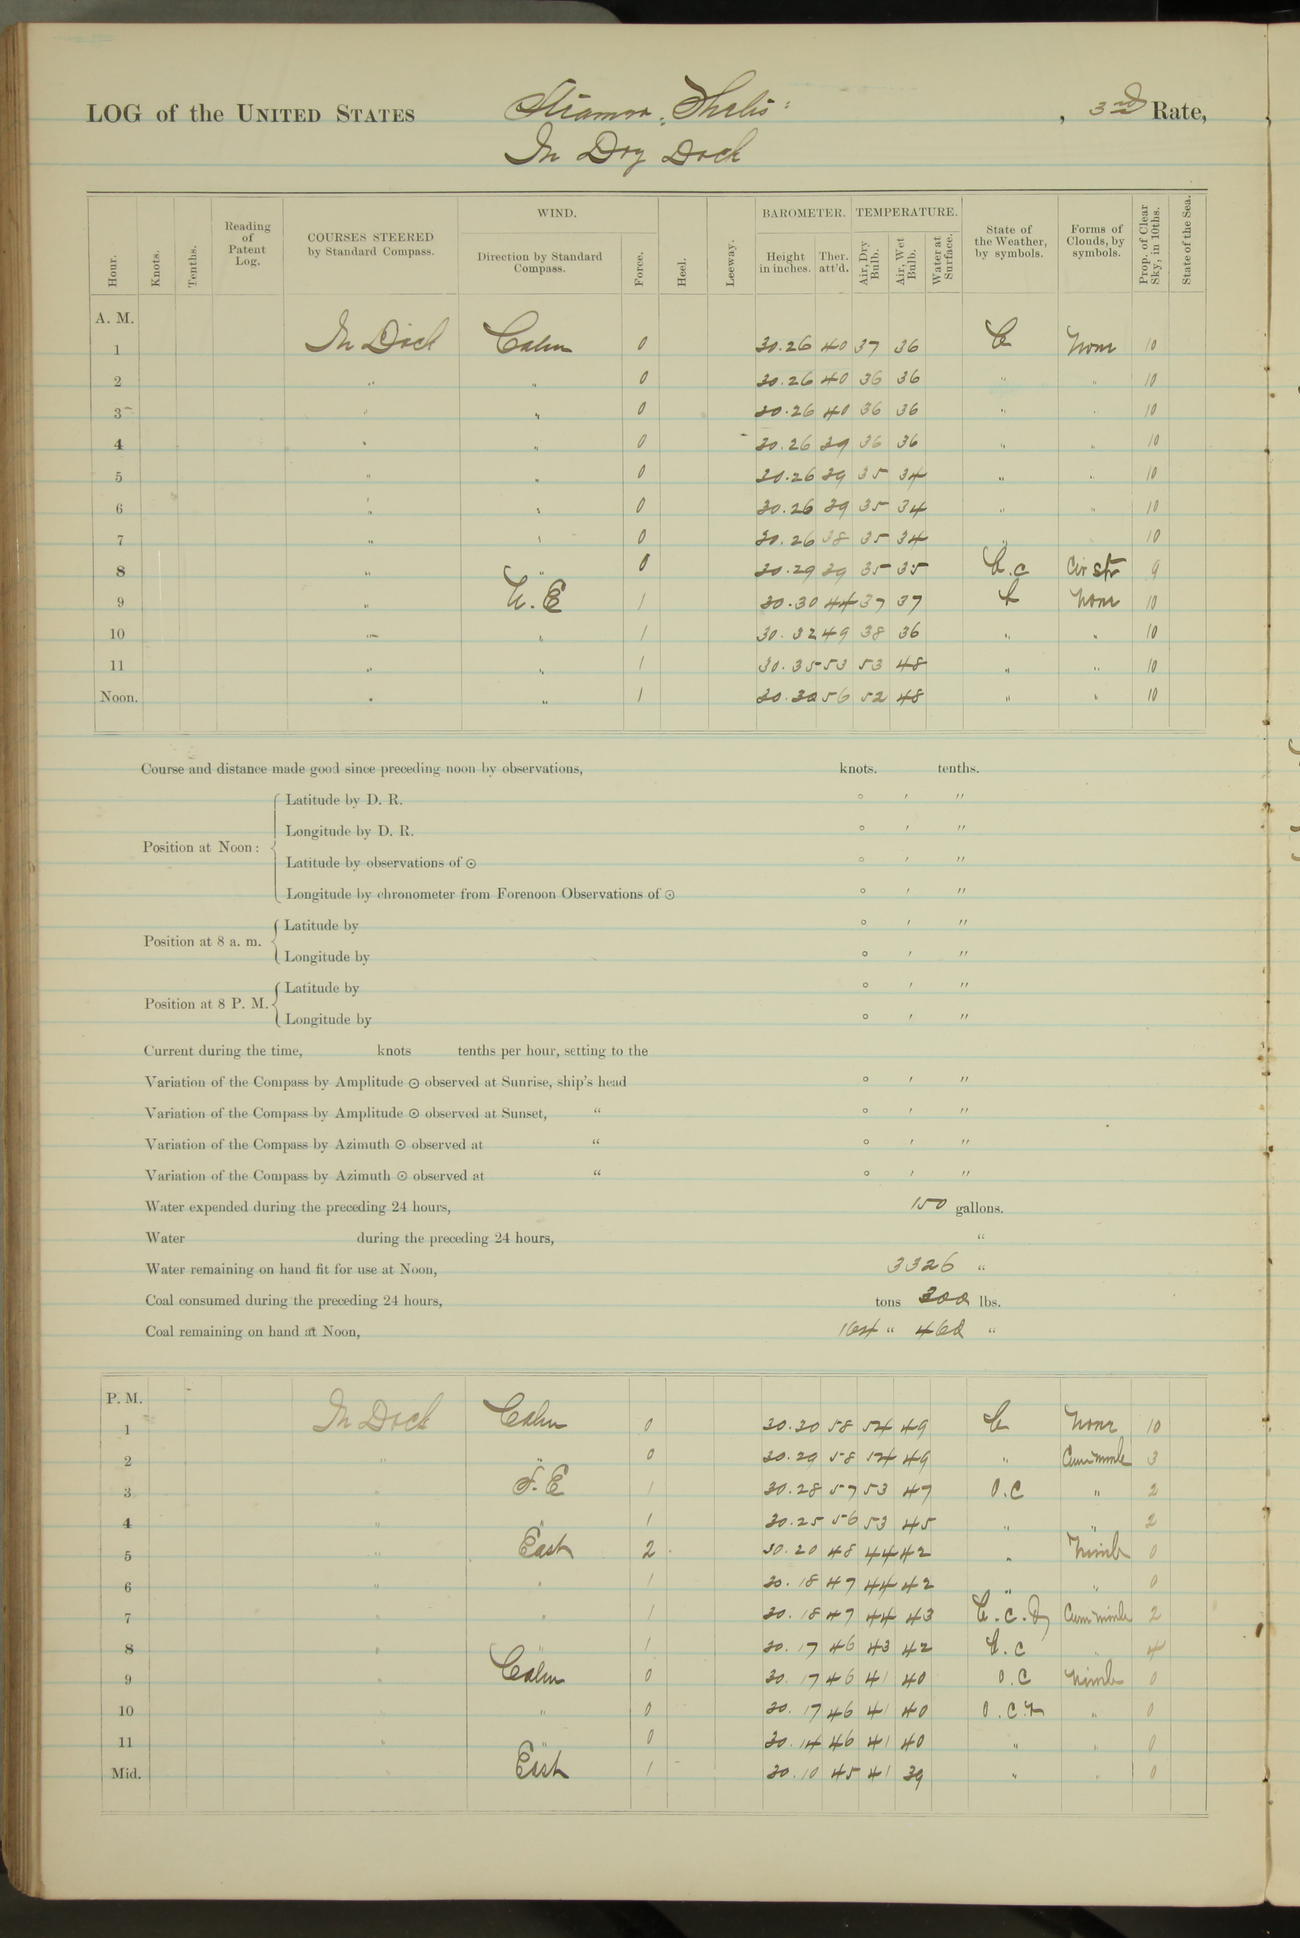 LOG of the UNITED STATES Steamer "Thetis" , 3rd Rate,
In Dry Dock
Hour. Knots. Tenths. Reading of Patent Log. COURSES STEERED by Standard Compass. WIND. Direction by Standard Compass. Force. Heel. Leeway. BAROMETER. Height in inches. Ther. att'd. TEMPERATURE. Air, Dry Bulb. Air, Wet Bulb. Water at Surface. State of the Weather, by symbols. Forms of Clouds, by symbols. Prop. of Clear Sky, in 10ths. State of the Sea.
A. M.
1 In Dock Calm 0 30.26 40 37 36 b None 10
2 " " 0 30.26 40 36 36 " " 10
3 " " 0 30.26 40 36 36 " " 10
4 " " 0 30.26 39 36 36 " " 10
5 " " 0 30.26 39 35 34 " " 10
6 " " 0 30.26 39 35 34 " " 10
7 " " 0 30.26 38 35 34 " " 10
8 " " 0 30.29 39 35 35 b.c Cir str 9
9 " N.E 1 30.30 44 37 37 b None 10
10 " " 1 30.32 49 38 36 " " 10
11 " " 1 30.35 53 53 48 " " 10
Noon. " " 1 30.30 56 52 48 " " 10
Course and distance made good since preceding noon by observations, knots. tenths.
Position at Noon: Latitude by D. R. ° ′ ″
Longitude by D. R. ° ′ ″
Latitude by observations of ☉ ° ′ ″
Longitude by chronometer from Forenoon Observations of ☉ ° ′ ″
Position at 8 a. m. Latitude by ° ′ ″
Longitude by ° ′ ″
Position at 8 P. M. Latitude by ° ′ ″
Longitude by ° ′ ″
Current during the time, knots tenths per hour, setting to the
Variation of the Compass by Amplitude ☉ observed at Sunrise, ship's head ° ′ ″
Variation of the Compass by Amplitude ☉ observed at Sunset, “ ° ′ ″
Variation of the Compass by Azimuth ☉ observed at “ ° ′ ″
Variation of the Compass by Azimuth ☉ observed at “ ° ′ ″
Water expended during the preceding 24 hours, 150 gallons.
Water during the preceding 24 hours, “
Water remaining on hand fit for use at Noon, 3326 “
Coal consumed during the preceding 24 hours, tons 300 lbs.
Coal remaining on hand at Noon, 164 “ 460 “
P. M.
1 In Dock Calm 0 30.30 58 54 49 b None 10
2 " " 0 30.29 58 54 49 " Cum nimb 3
3 " S.E 1 30.28 57 53 47 O.C " 2
4 " " 1 30.25 56 53 45 " " 2
5 " East 2 30.20 48 44 42 " Nimb 0
6 " " 1 30.18 47 44 42 " " 0
7 " " 1 30.18 47 44 43 b.c.d Cum nimb 2
8 " " 1 30.17 46 43 42 b.c " 4
9 " Calm 0 30.17 46 41 40 O.C Nimb 0
10 " " 0 30.17 46 41 40 O.C.r " 0
11 " " 0 30.14 46 41 40 " " 0
Mid. East 1 30.10 45 41 39 " " 0